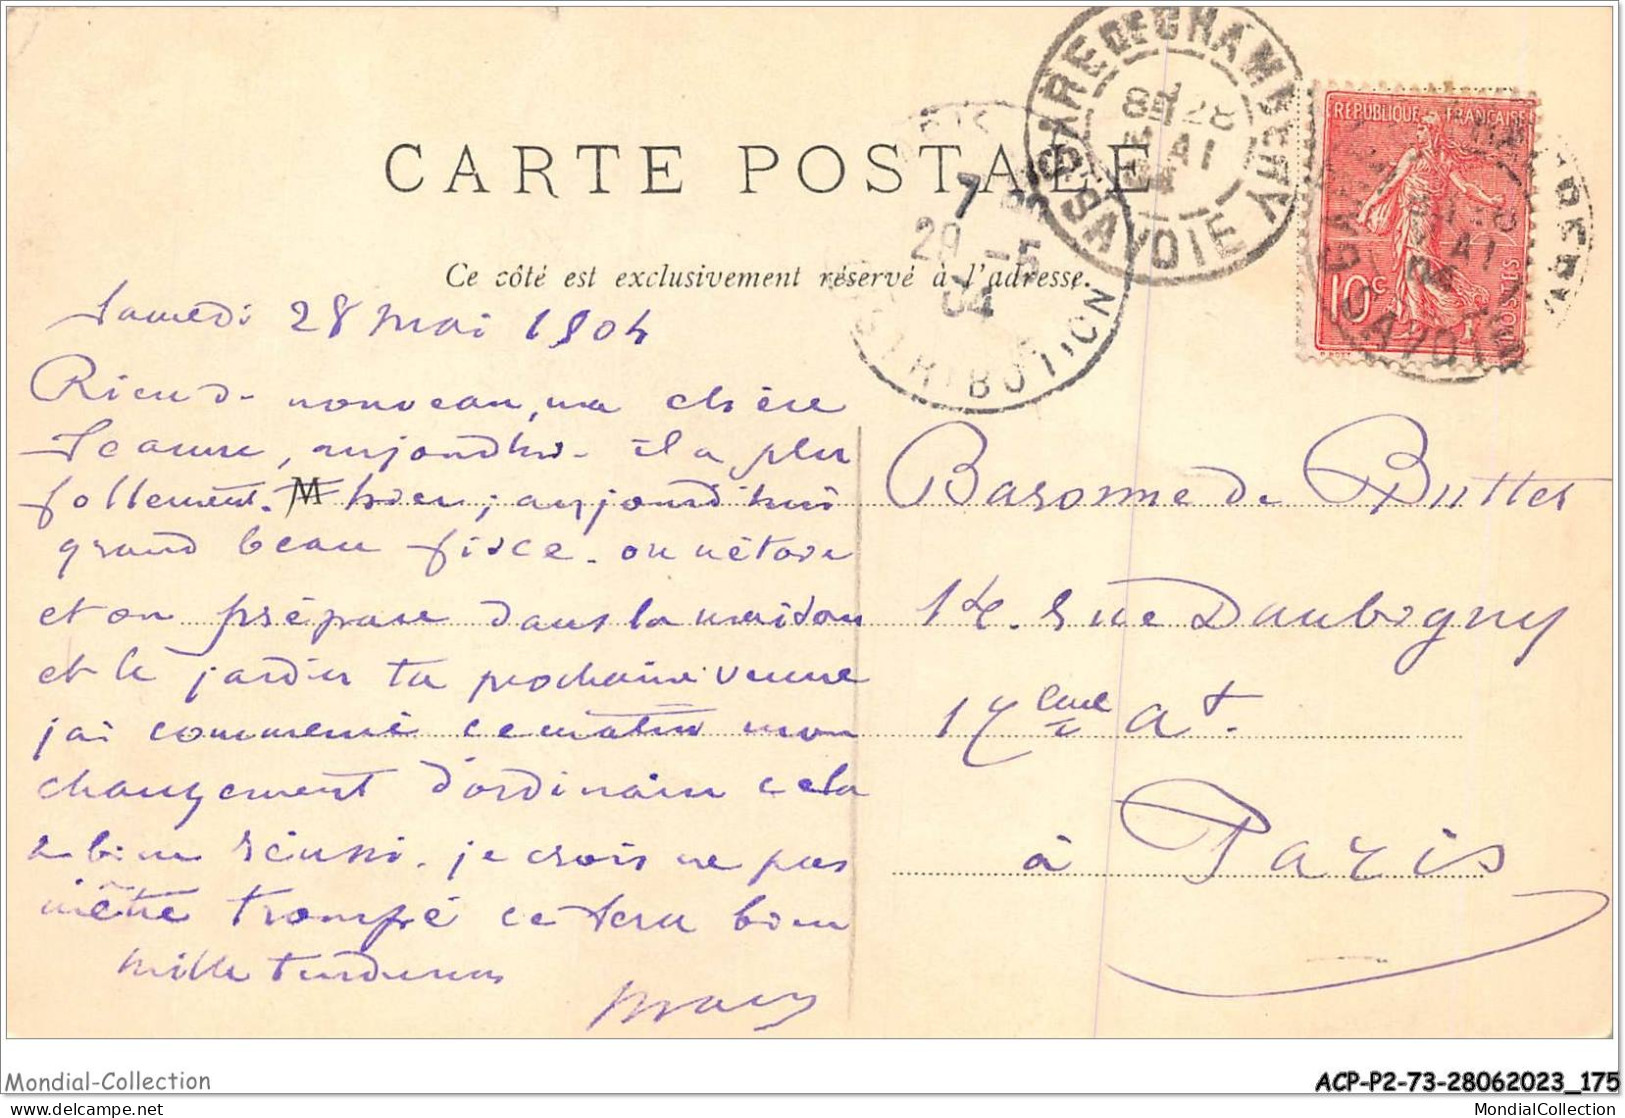 CARTE POSTALE
Ce côté est exclusivement réservé à l'adresse.
GARE DE CHAMBERY
SAVOIE
8E 28
MAI
04
PARIS
7
29 -5
04
DISTRIBUTION
REPUBLIQUE FRANÇAISE
10c
POSTES
Samedi 28 mai 1904
Rien de nouveau, ma chère
Jeanne, aujourdhui il a plu
follement hier; aujourd'hui
grand beau fixe. on nétoie
et on prépare dans la maison
et le jardin ta prochaine venue
jai commencé ce matin mon
changement d'ordinaire cela
a bien réussi. je crois ne pas
mêtre trompé ce sera bien
mille tendresses
Baronne de Buttet
14. rue Daubigny
17eme At.
à Paris
Mondial-Collection
ACP-P2-73-28062023_175
delcampe.net
MondialCollection